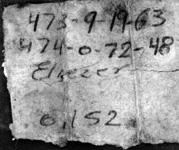 473-9-19-63
474-0-72-48
Eliezer
0,152